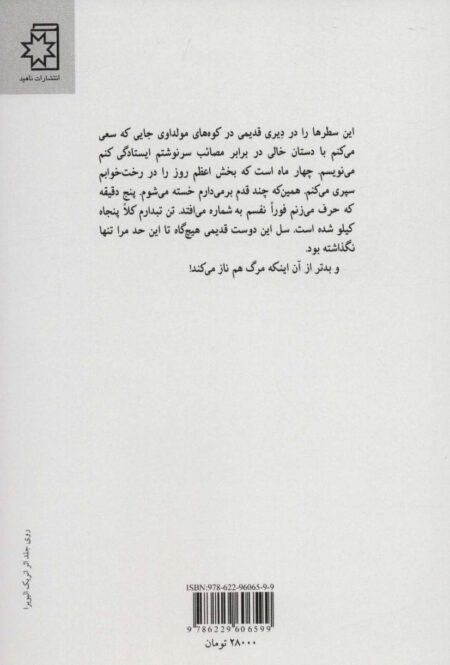 انتشارات ناهید
این سطرها را در دیری قدیمی در کوه‌های مولداوی جایی که سعی
می‌کنم با دستان خالی در برابر مصائب سرنوشتم ایستادگی کنم
می‌نویسم. چهار ماه است که بخش اعظم روز را در رخت‌خوابم
سپری می‌کنم. همین‌که چند قدم برمی‌دارم خسته می‌شوم. پنج دقیقه
که حرف می‌زنم فوراً نفسم به شماره می‌افتد. تن تبدارم کلاً پنجاه
کیلو شده است. سل این دوست قدیمی هیچ‌گاه تا این حد مرا تنها
نگذاشته بود.
و بدتر از آن اینکه مرگ هم ناز می‌کند!
روی جلد اثر انریک الیویرا
ISBN:978-622-96065-9-9
9 786229 606599
۲۸۰۰۰ تومان